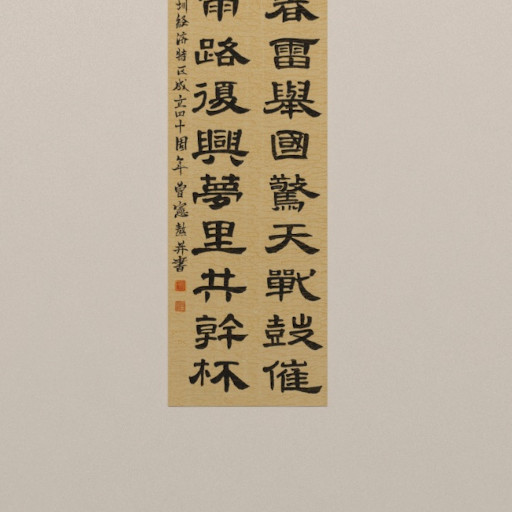 春雷舉國驚天戰鼓催
路復興夢里共幹杯
圳经济特区成立四十周年 曾憲并書